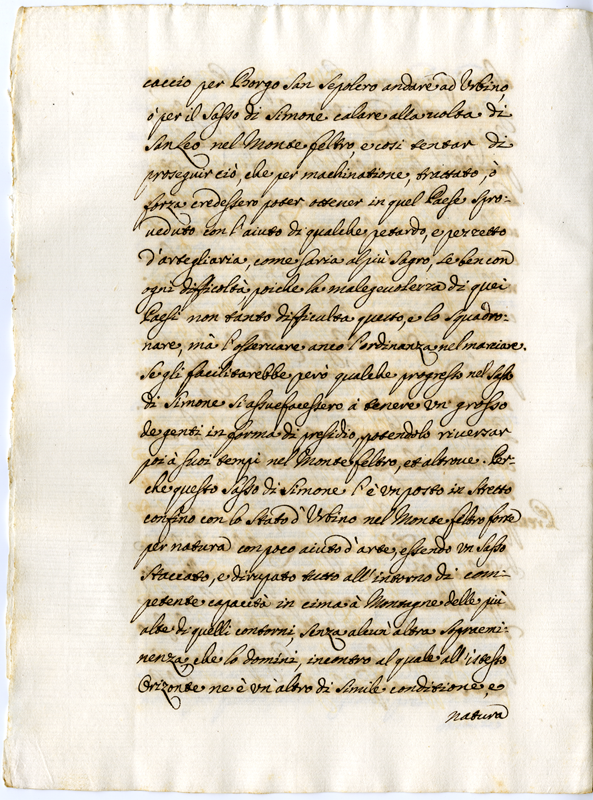 caccio per Borgo San Sepolcro andare ad Urbino,
ò per il Sasso di Simone calare alla uolta di
San Leo nel Monte feltro, e cosi tentar di
proseguir ciò, che per machinatione, trattato, ò
forza credessero poter ottener in quel Paese spro-
ueduto con l'aiuto di qualche petardo, e pezzetto
d'artegliaria, come saria al più Sagro, se ben con
ogni difficoltà, poiche la malegeuolezza di quei
Paesi non tanto difficulta questo, e lo squadro-
nare, mà l'osseruare anco l'ordinanza nel marciare.
Se gli facilitarebbe però qualche progresso nel Sasso
di Simone si assuefacessero à tenere un grosso
de genti in forma di presidio, potendolo riuersar
poi à suoi tempi nel Monte feltro, et altroue. Per-
che questo Sasso di Simone s'è un posto in stretto
confino con lo Stato d'Urbino nel Monte feltro forte
per natura con poco aiuto d'arte, essendo un Sasso
staccato, e dirupato tutto all'intorno di com-
petente capacità in cima à Montagne delle più
alte di quelli contorni, senza alcun'altra sopraemi-
nenza, che lo domini, incontro al quale all'istesso
Orizonte ne è un'altro di simile conditione, e
natura